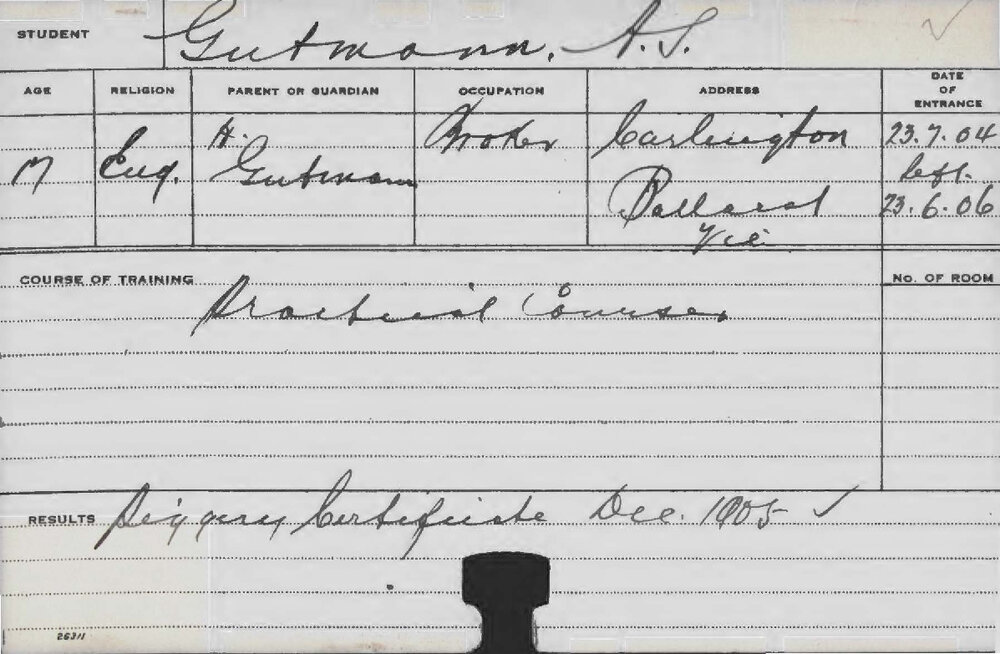 STUDENT Gutmann. A. S.
AGE RELIGION PARENT OR GUARDIAN OCCUPATION ADDRESS DATE OF ENTRANCE
17 Eng. H. Gutmann Broker Carlington Ballarat Vic 23.7.04 left. 23.6.06
COURSE OF TRAINING Practical Course. No. OF ROOM
RESULTS Piggery Certificate Dec. 1905 ✓
26311